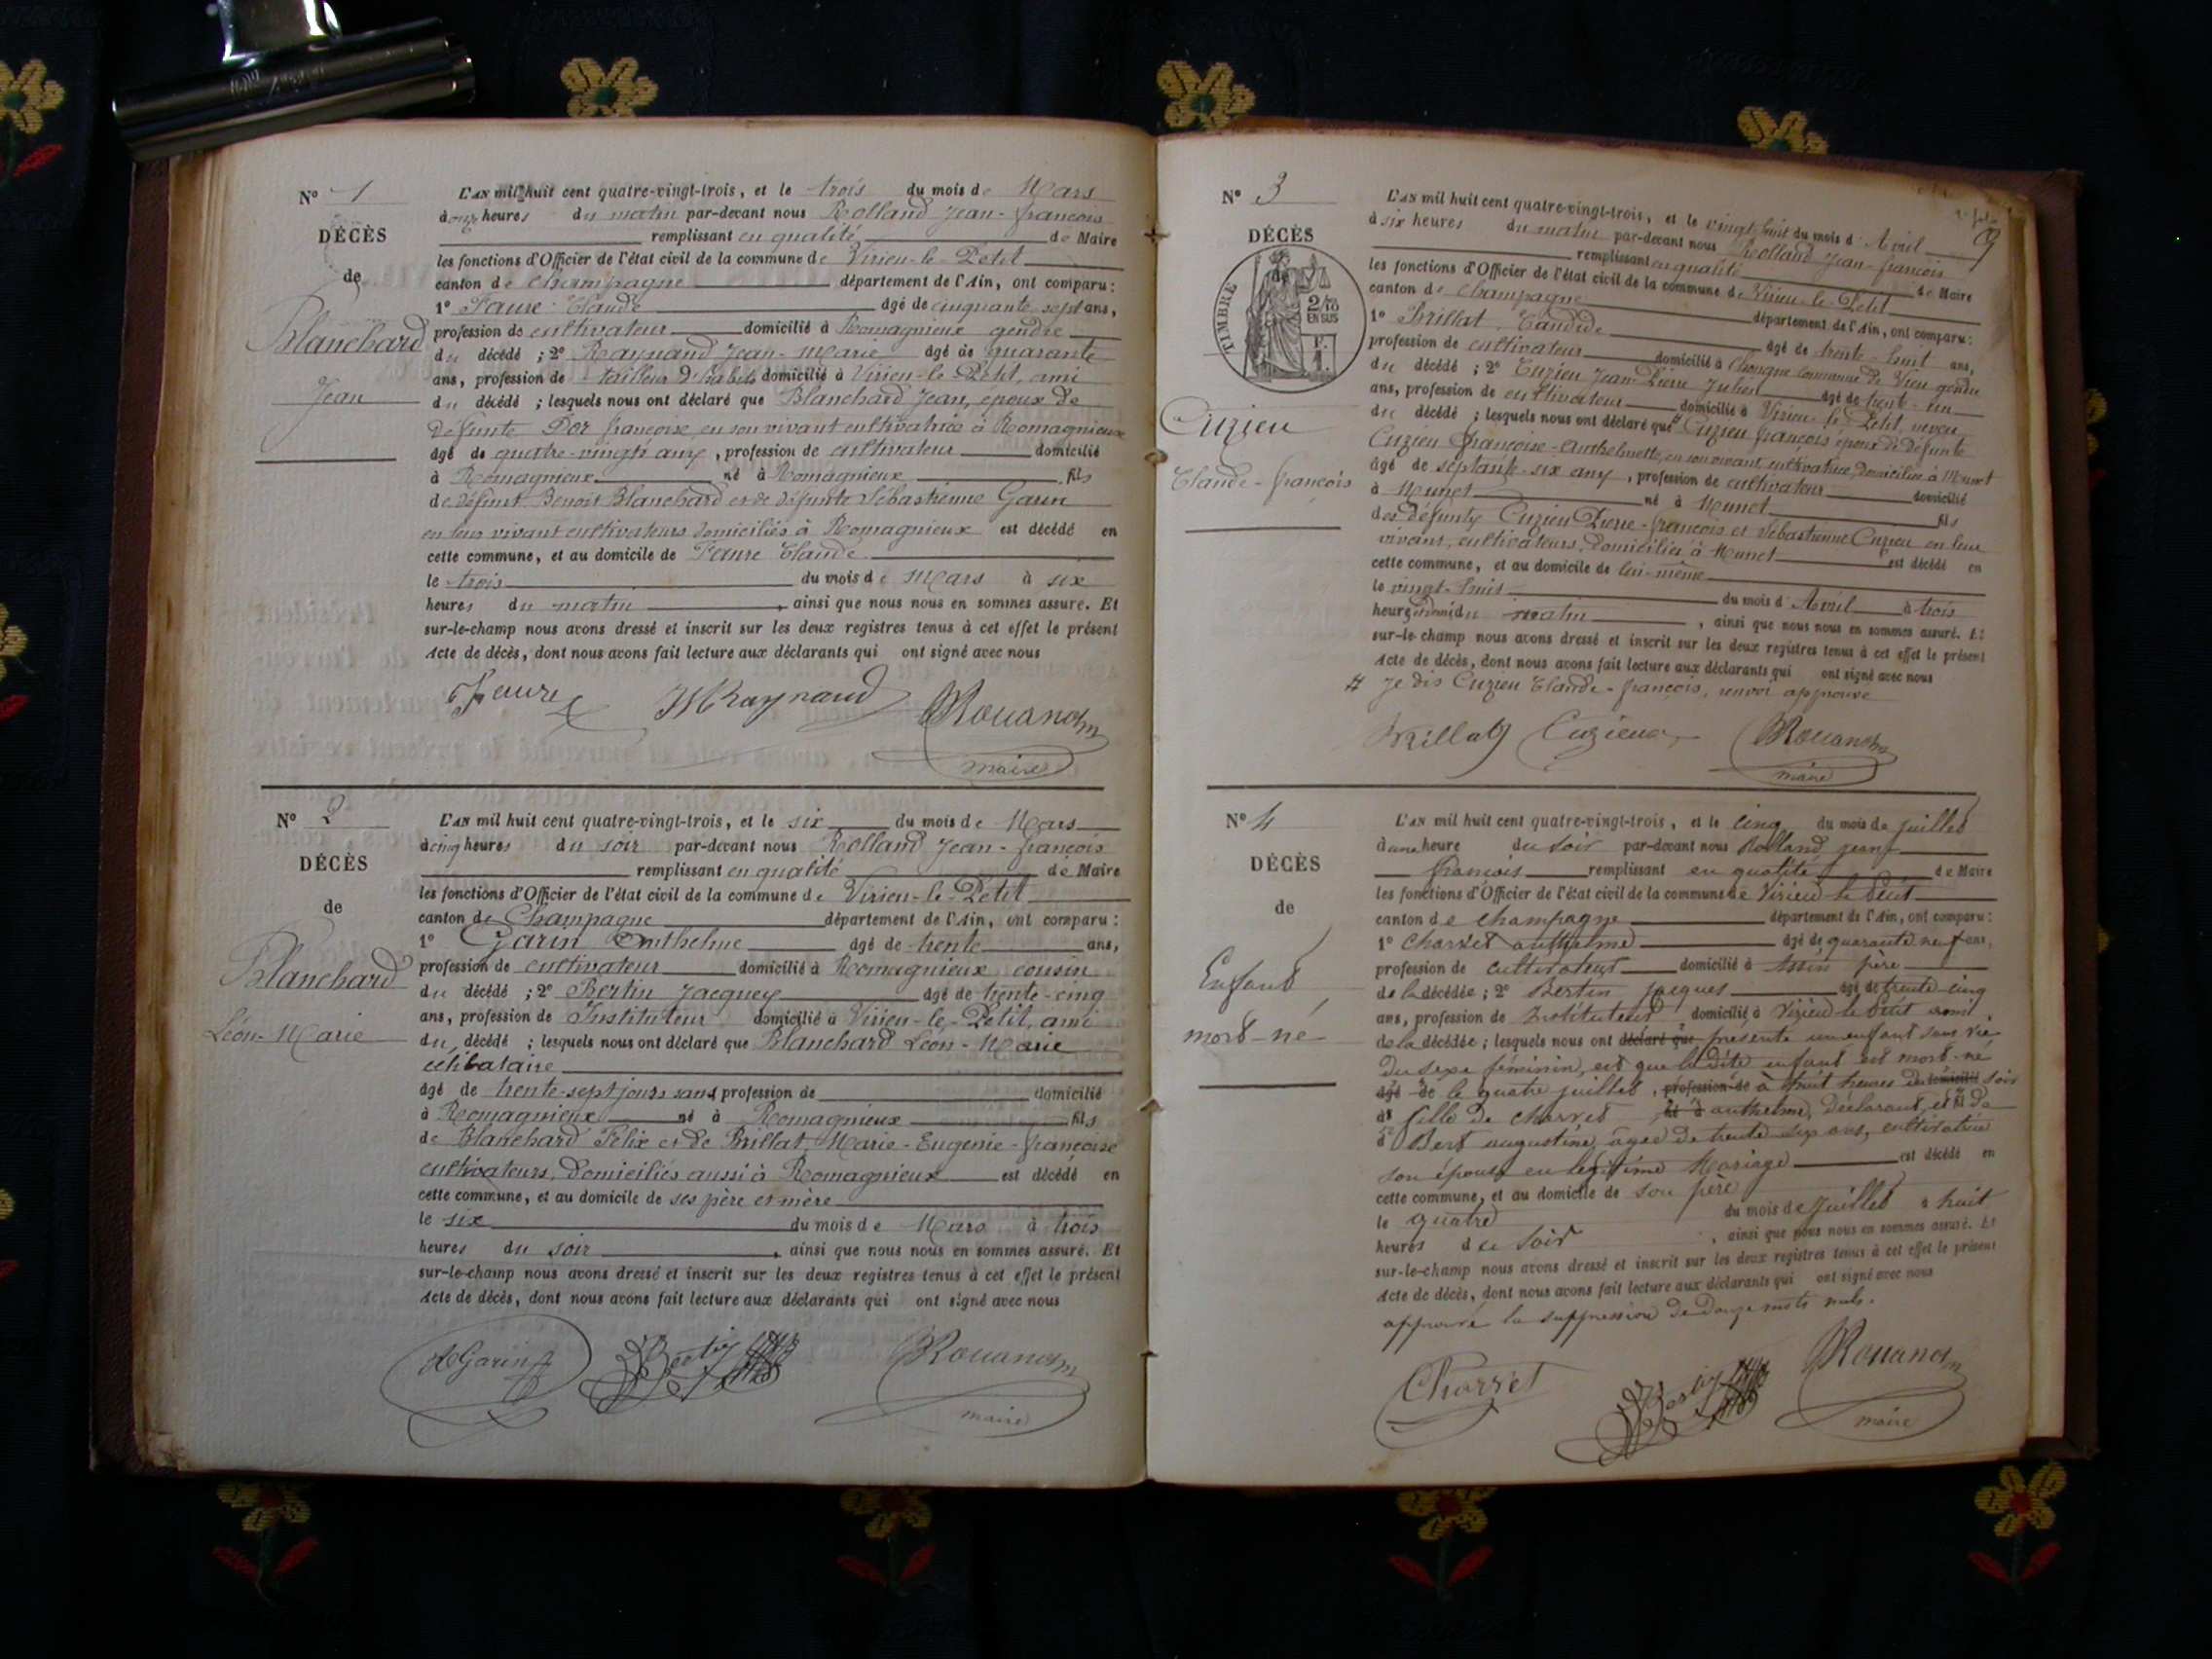 N° 1
DÉCÈS
de
Blanchard
Jean
L'AN mil huit cent quatre-vingt-trois, et le trois du mois de Mars
à onze heures du matin par-devant nous Rolland Jean-françois
remplissant en qualité de Maire
les fonctions d'Officier de l'état civil de la commune de Virieu-le-Petit
canton de Champagne département de l'Ain, ont comparu :
1° Faure Claude âgé de cinquante-sept ans,
profession de cultivateur domicilié à Romagnieux gendre
du décédé ; 2° Raynaud Jean-Marie âgé de quarante
ans, profession de tailleur d'habits domicilié à Virieu-le-Petit, ami
du décédé ; lesquels nous ont déclaré que Blanchard Jean, époux de
défunte Dor françoise, en son vivant cultivatrice à Romagnieux
âgé de quatre-vingts ans, profession de cultivateur domicilié
à Romagnieux né à Romagnieux fils
de défunt Benoit Blanchard et de défunte Sébastienne Garin
en leur vivant cultivateurs domiciliés à Romagnieux est décédé en
cette commune, et au domicile de Faure Claude
le trois du mois de Mars à six
heures du matin, ainsi que nous nous en sommes assuré. Et
sur-le-champ nous avons dressé et inscrit sur les deux registres tenus à cet effet le présent
Acte de décès, dont nous avons fait lecture aux déclarants qui ont signé avec nous
Faure JM Raynaud Rolland
maire
N° 2
DÉCÈS
de
Blanchard
Léon-Marie
L'AN mil huit cent quatre-vingt-trois, et le six du mois de Mars
à cinq heures du soir par-devant nous Rolland Jean-françois
remplissant en qualité de Maire
les fonctions d'Officier de l'état civil de la commune de Virieu-le-Petit
canton de Champagne département de l'Ain, ont comparu :
1° Garin Anthelme âgé de trente ans,
profession de cultivateur domicilié à Romagnieux cousin
du décédé ; 2° Bertin Jacques âgé de trente-cinq
ans, profession de Instituteur domicilié à Virieu-le-Petit, ami
du décédé ; lesquels nous ont déclaré que Blanchard Léon-Marie
célibataire
âgé de trente-sept jours sans profession de domicilié
à Romagnieux né à Romagnieux fils
de Blanchard Félix et de Brillat Marie-Eugénie-françoise
cultivateurs, domiciliés aussi à Romagnieux est décédé en
cette commune, et au domicile de ses père et mère
le six du mois de Mars à trois
heures du soir, ainsi que nous nous en sommes assuré. Et
sur-le-champ nous avons dressé et inscrit sur les deux registres tenus à cet effet le présent
Acte de décès, dont nous avons fait lecture aux déclarants qui ont signé avec nous
A Garin Bertin Rolland
maire
9
N° 3
DÉCÈS
de
TIMBRE
2/10
EN SUS
Cuzieu
Claude-françois
L'AN mil huit cent quatre-vingt-trois, et le vingt-huit du mois d'Avril
à six heures du matin par-devant nous Rolland Jean-françois
remplissant en qualité de Maire
les fonctions d'Officier de l'état civil de la commune de Virieu-le-Petit
canton de Champagne département de l'Ain, ont comparu :
1° Brillat, Candide âgé de trente-huit ans,
profession de cultivateur domicilié à Chongne commune de Vieu gendre
du décédé ; 2° Cuzieu Jean-Pierre Julien âgé de trente-un
ans, profession de cultivateur domicilié à Virieu-le-Petit, neveu
du décédé ; lesquels nous ont déclaré que # Cuzieu françois époux de défunte
Cuzieu françoise-Anthelmette, en son vivant, cultivatrice, domiciliée à Munet
âgé de septante-six ans, profession de cultivateur domicilié
à Munet né à Munet fils
des défunts Cuzieu Pierre-françois et Sébastienne Cuzieu en leur
vivant, cultivateurs, domiciliés à Munet est décédé en
cette commune, et au domicile de lui-même
le vingt-huit du mois d'Avril à trois
heures et demi du matin, ainsi que nous nous en sommes assuré. Et
sur-le-champ nous avons dressé et inscrit sur les deux registres tenus à cet effet le présent
Acte de décès, dont nous avons fait lecture aux déclarants qui ont signé avec nous
# Je dis Cuzieu Claude-françois, renvoi approuvé
Brillat Cuzieu Rolland
maire
N° 4
DÉCÈS
de
Enfant
mort-né
L'AN mil huit cent quatre-vingt-trois, et le cinq du mois de juillet
à une heure du soir par-devant nous Rolland jean
françois remplissant en qualité de Maire
les fonctions d'Officier de l'état civil de la commune de Virieu-le-Petit
canton de Champagne département de l'Ain, ont comparu :
1° Charvet anthelme âgé de quarante neuf ans,
profession de cultivateur domicilié à Assin père
de la décédée ; 2° Bertin jacques âgé de trente cinq
ans, profession de Instituteur domicilié à Virieu-le-Petit ami
de la décédée ; lesquels nous ont déclaré que présenté un enfant sans vie
du sexe féminin, et que ladite enfant est mort-né
âgé de le quatre juillet, profession de à huit heures du domicilié soir
à fille de Charvet né à anthelme, déclarant, et fils de
d Bert augustine, âgée de trente six ans, cultivatrice
son épouse en légitime Mariage est décédé en
cette commune, et au domicile de son père
le quatre du mois de juillet à huit
heures du soir, ainsi que nous nous en sommes assuré. Et
sur-le-champ nous avons dressé et inscrit sur les deux registres tenus à cet effet le présent
Acte de décès, dont nous avons fait lecture aux déclarants qui ont signé avec nous
approuvé la suppression de douze mots nuls.
Charvet Bertin Rolland
maire